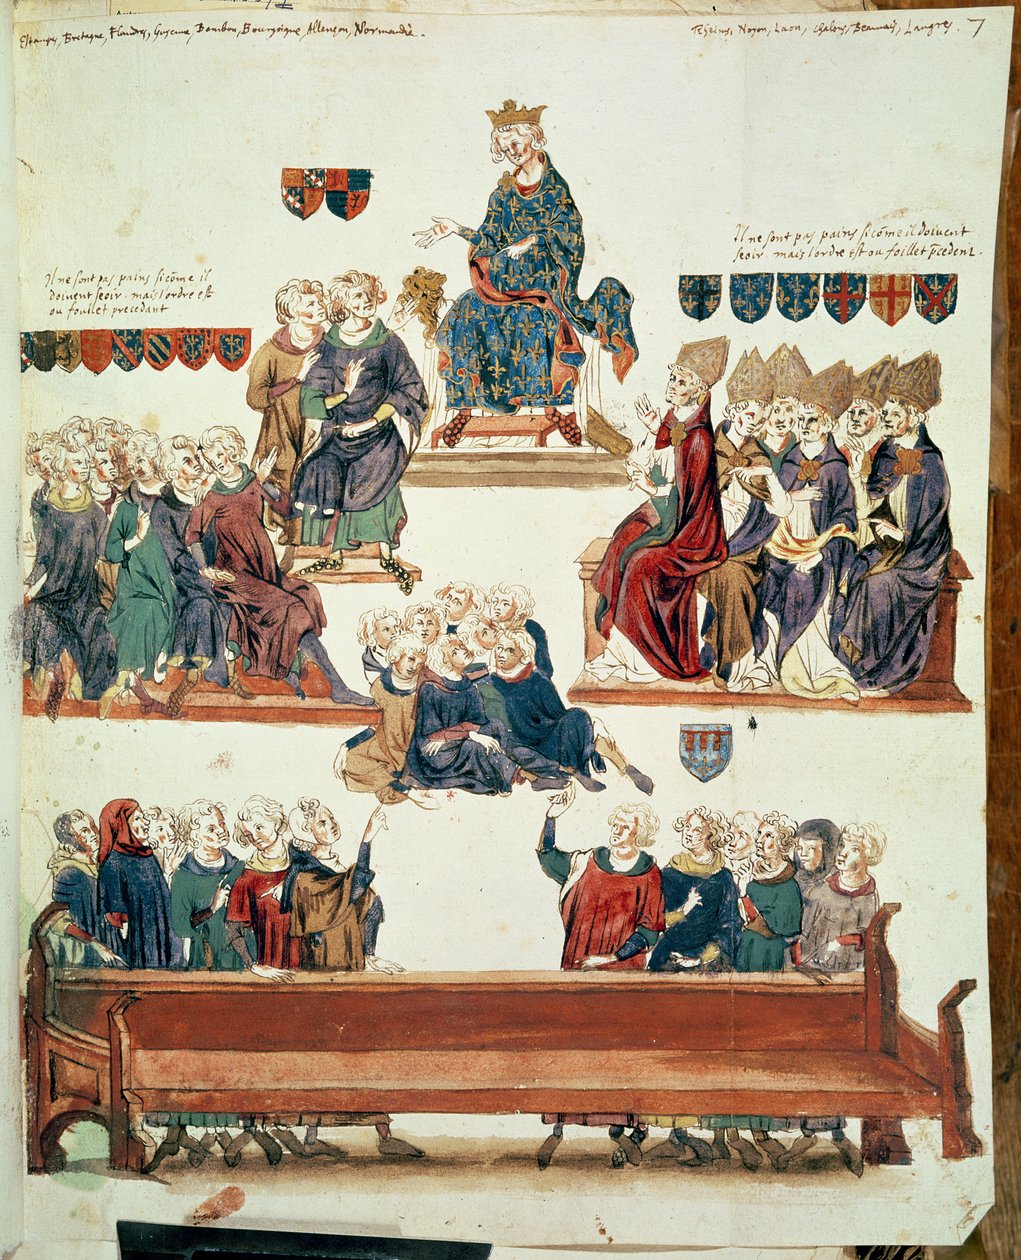 Estampes, Bretagne, Flandres, Guyenne, Bourbon, Bourgoigne, Allenson, Normandie.
Rheins, Noyon, Laon, Chalons, Beauvais, Langres. 7
Il ne sont pas pairs sicōme il doivent
seoir. mais l'ordre est ou foillet p̄cedent.
Il ne sont pas pairs sicōme il
doivent seoir. mais l'ordre est
ou foillet precedant